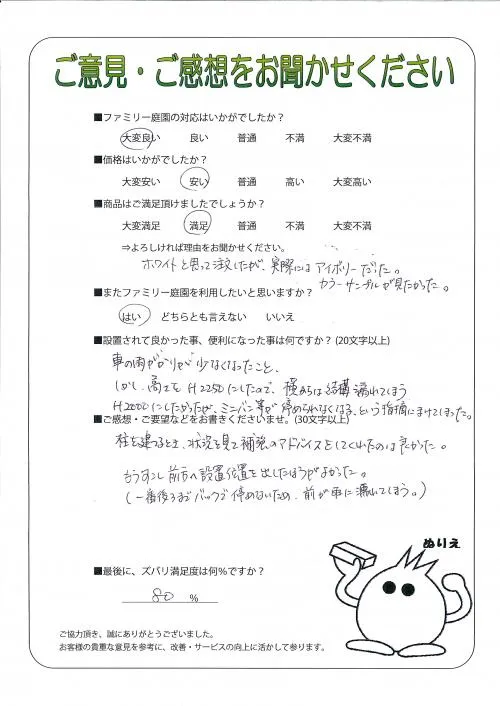 ご意見・ご感想をお聞かせください
■ファミリー庭園の対応はいかがでしたか?
大変良い 良い 普通 不満 大変不満
■価格はいかがでしたか?
大変安い 安い 普通 高い 大変高い
■商品はご満足頂けましたでしょうか?
大変満足 満足 普通 不満 大変不満
⇒よろしければ理由をお聞かせください。
ホワイトと思って注文したが、実際にはアイボリーだった。
カラーサンプルが見たかった。
■またファミリー庭園を利用したいと思いますか?
はい どちらとも言えない いいえ
■設置されて良かった事、便利になった事は何ですか? (20文字以上)
車の雨がかりが少なくなったこと、
しかし、高さをH2250にしたので、横からは結構濡れてしまう
H2000にしたかったが、ミニバン等が停められなくなる、という指摘にまけてしまった。
■ご感想・ご要望などをお書きくださいませ。(30文字以上)
柱を建てるとき、状況を見て補強のアドバイスをしてくれたのは良かった。
もうすこし前方へ設置位置を出したほうがよかった。
(一番後ろまでバックで停めないため、前が車に濡れてしまう。)
ぬりえ
■最後に、ズバリ満足度は何%ですか?
80 %
ご協力頂き、誠にありがとうございました。
お客様の貴重な意見を参考に、改善・サービスの向上に活かして参ります。